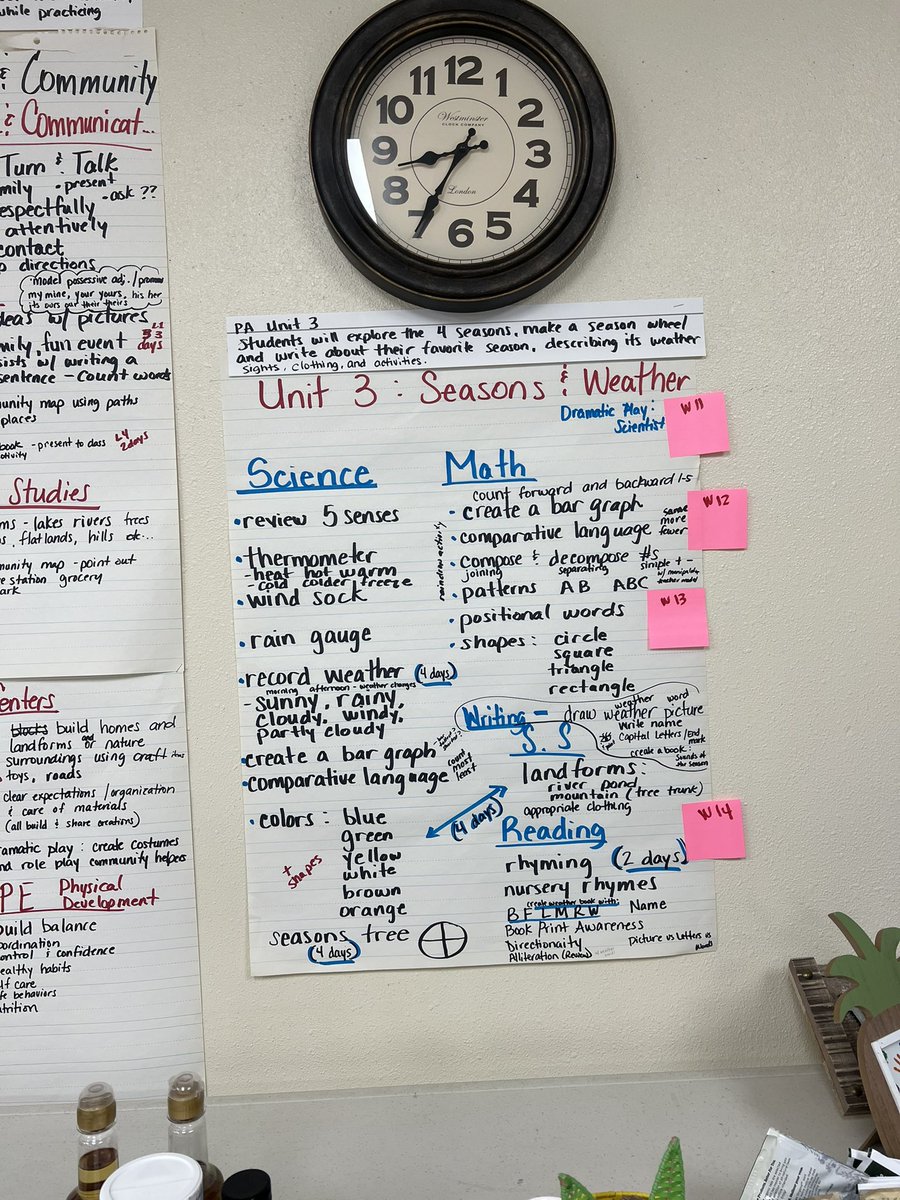 while practicing
& Community
& Communicat...
Turn & Talk
mily • present
• ask ??
espectfully
attentively
contact
o directions
• Model possessive adj. / pronoun
my mine, your yours, his her
its ours our their theirs
deas w/ pictures
mily fun event
days
sists w/ writing a
sentence - count words
unity map using paths
places
book - present to class
2 days
otivity
Studies
ms - lakes rivers trees
s, flatlands, hills etc...
munity map - point out
e station grocery
ark
enters
blocks build homes and
landforms or nature
surroundings using craft items
toys, roads
clear expectations / organization
& care of materials
(all build & share creations)
ramatic play : create costumes
nd role play community helpers
PE Physical
Development
build balance
oordination
ontrol & confidence
ealthy habits
lf care
fe behaviors
utrition
12
1
2
3
4
5
6
7
8
9
10
11
Westminster
CLOCK COMPANY
London
PA Unit 3
Students will explore the 4 seasons, make a season wheel
and write about their favorite season, describing its weather
sights, clothing, and activities.
Unit 3 : Seasons & Weather
Dramatic Play :
Scientist
W 11
Science
• review 5 senses
• thermometer
- heat hot warm
- cold colder freeze
• wind sock
• rain gauge
• record weather (4 days)
morning afternoon - weather changes
- sunny, rainy,
cloudy, windy,
partly cloudy
• create a bar graph
• comparative language
count
most
least
• colors : blue
green
yellow
white
brown
orange
+ shapes
(4 days)
seasons tree
(4 days)
Math
count forward and backward 1-5
• create a bar graph
• comparative language
same
more
fewer
W 12
• compose & decompose #s
joining separating simple + -
w/ manipulatives
teacher model
raindrop activity
• patterns AB ABC
W 13
• positional words
• shapes : circle
square
triangle
rectangle
Writing - draw weather picture
weather word
write name
Capital letters / End mark
create a book :
Sounds of the Season
S.S
landforms :
river pond
mountain (tree trunk)
appropriate clothing
W 14
Reading
rhyming (2 days)
nursery rhymes
create weather book with:
B F L M R W Name
Book Print Awareness
Directionality
Picture vs Letters vs Words
Alliteration (Review)